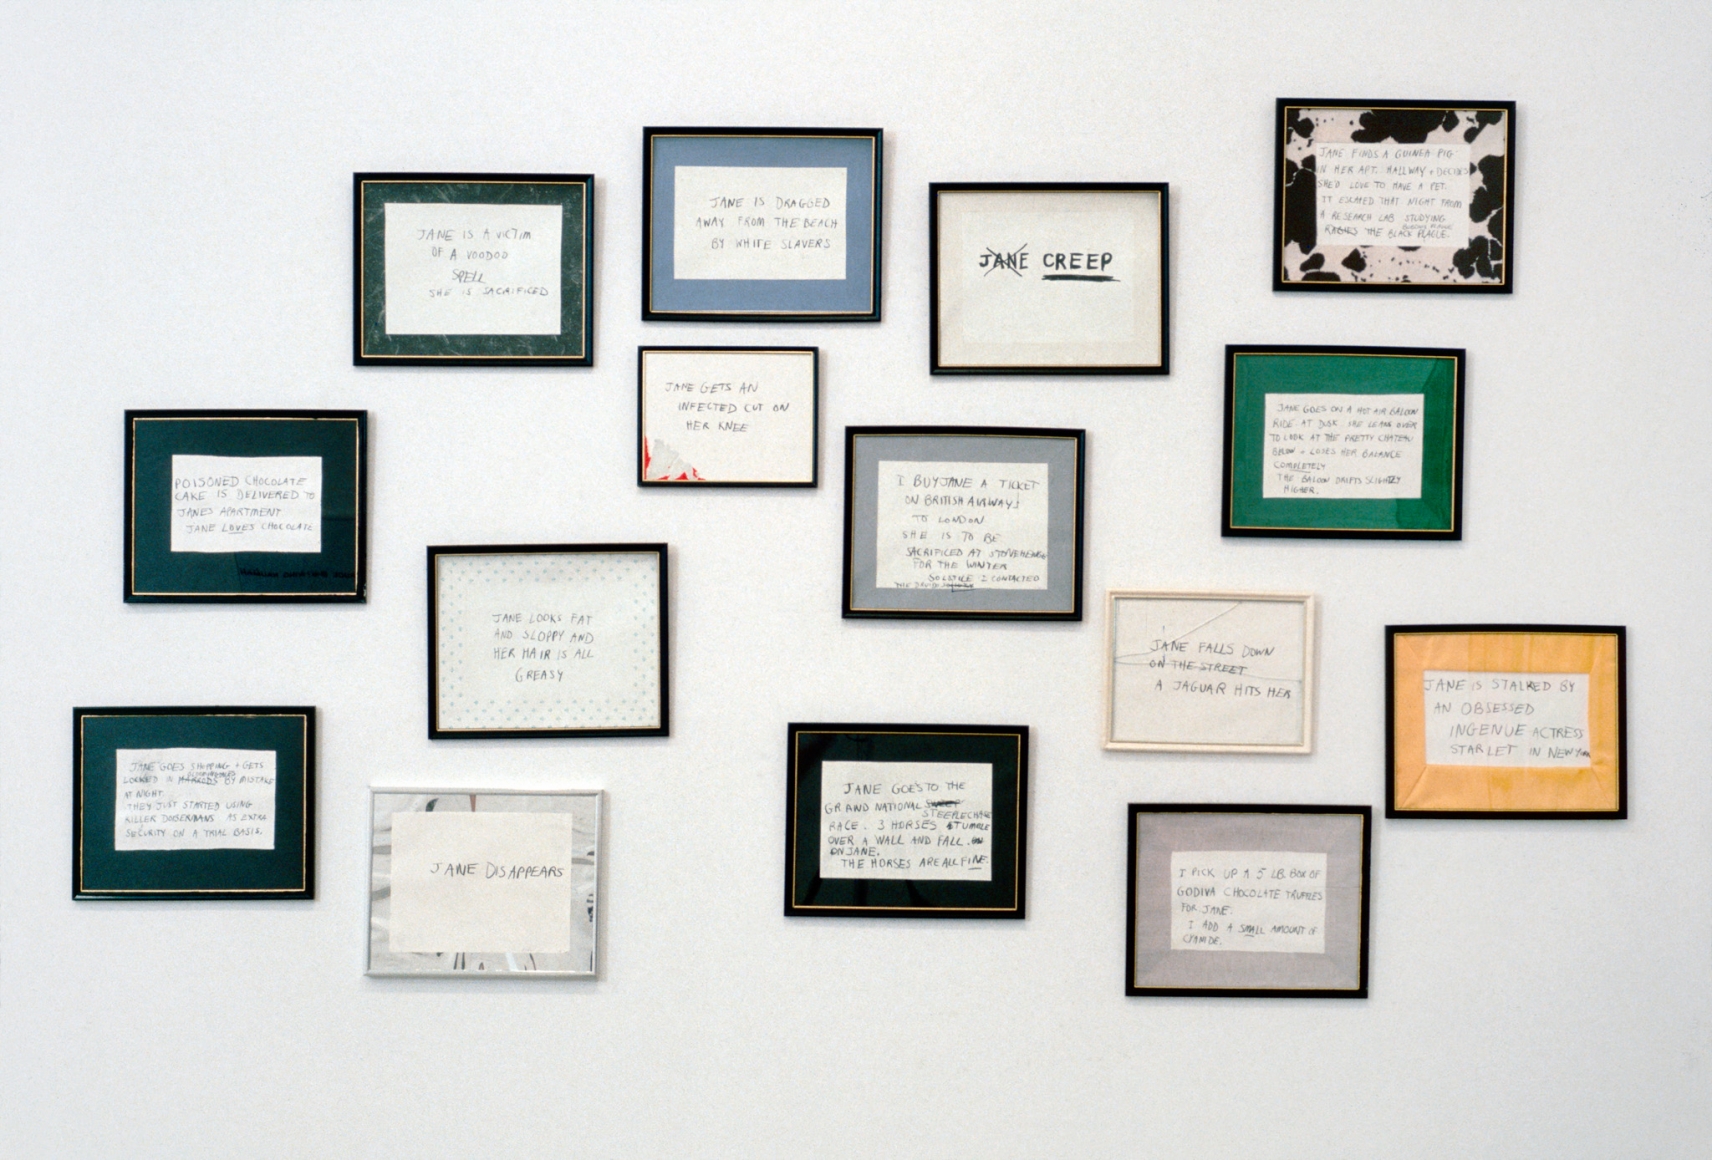 JANE IS A VICTIM
OF A VOODOO
SPELL
SHE IS SACRIFICED
JANE IS DRAGGED
AWAY FROM THE BEACH
BY WHITE SLAVERS
JANE CREEP
JANE FINDS A GUINEA PIG
IN HER APT. HALLWAY + DECIDES
SHE'D LOVE TO HAVE A PET.
IT ESCAPED THAT NIGHT FROM
A RESEARCH LAB STUDYING
RABIES THE BLACK PLAGUE.
JANE GETS AN
INFECTED CUT ON
HER KNEE
JANE GOES ON A HOT AIR BALOON
RIDE AT DUSK. SHE LEANS OVER
TO LOOK AT THE PRETTY CHATEAU
BELOW + LOSES HER BALANCE
COMPLETELY
THE BALOON DRIFTS SLIGHTLY
HIGHER.
POISONED CHOCOLATE
CAKE IS DELIVERED TO
JANES APARTMENT
JANE LOVES CHOCOLATE
I BUY JANE A TICKET
ON BRITISH AIRWAYS
TO LONDON
SHE IS TO BE
SACRIFICED AT STONEHENGE
FOR THE WINTER
SOLSTICE I CONTACTED
THE DRUID
JANE LOOKS FAT
AND SLOPPY AND
HER HAIR IS ALL
GREASY
JANE FALLS DOWN
ON THE STREET
A JAGUAR HITS HER
JANE IS STALKED BY
AN OBSESSED
INGENUE ACTRESS
STARLET IN NEW YORK
JANE GOES SHOPPING + GETS
LOCKED IN BLOOMINGDALES BY MISTAKE
AT NIGHT.
THEY JUST STARTED USING
KILLER DOBERMANS AS EXTRA
SECURITY ON A TRIAL BASIS.
JANE DISAPPEARS
JANE GOES TO THE
GRAND NATIONAL
STEEPLECHASE
RACE. 3 HORSES STUMBLE
OVER A WALL AND FALL
ON JANE.
THE HORSES ARE ALL FINE.
I PICK UP A 5 LB. BOX OF
GODIVA CHOCOLATE TRUFFLES
FOR JANE.
I ADD A SMALL AMOUNT OF
CYANIDE.